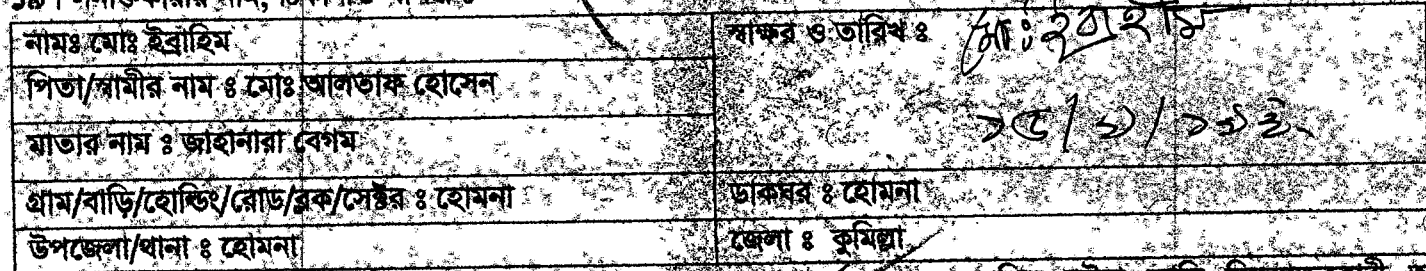 নামঃ মোঃ ইব্রাহিম
স্বাক্ষর ও তারিখ ঃ মোঃ ইব্রাহিম
পিতা/স্বামীর নাম ঃ মোঃ আলতাফ হোসেন
মাতার নাম ঃ জাহানারা বেগম
গ্রাম/বাড়ি/হোল্ডিং/রোড/ব্লক/সেক্টর ঃ হোমনা
ডাকঘর ঃ হোমনা
উপজেলা/থানা ঃ হোমনা
জেলা ঃ কুমিল্লা